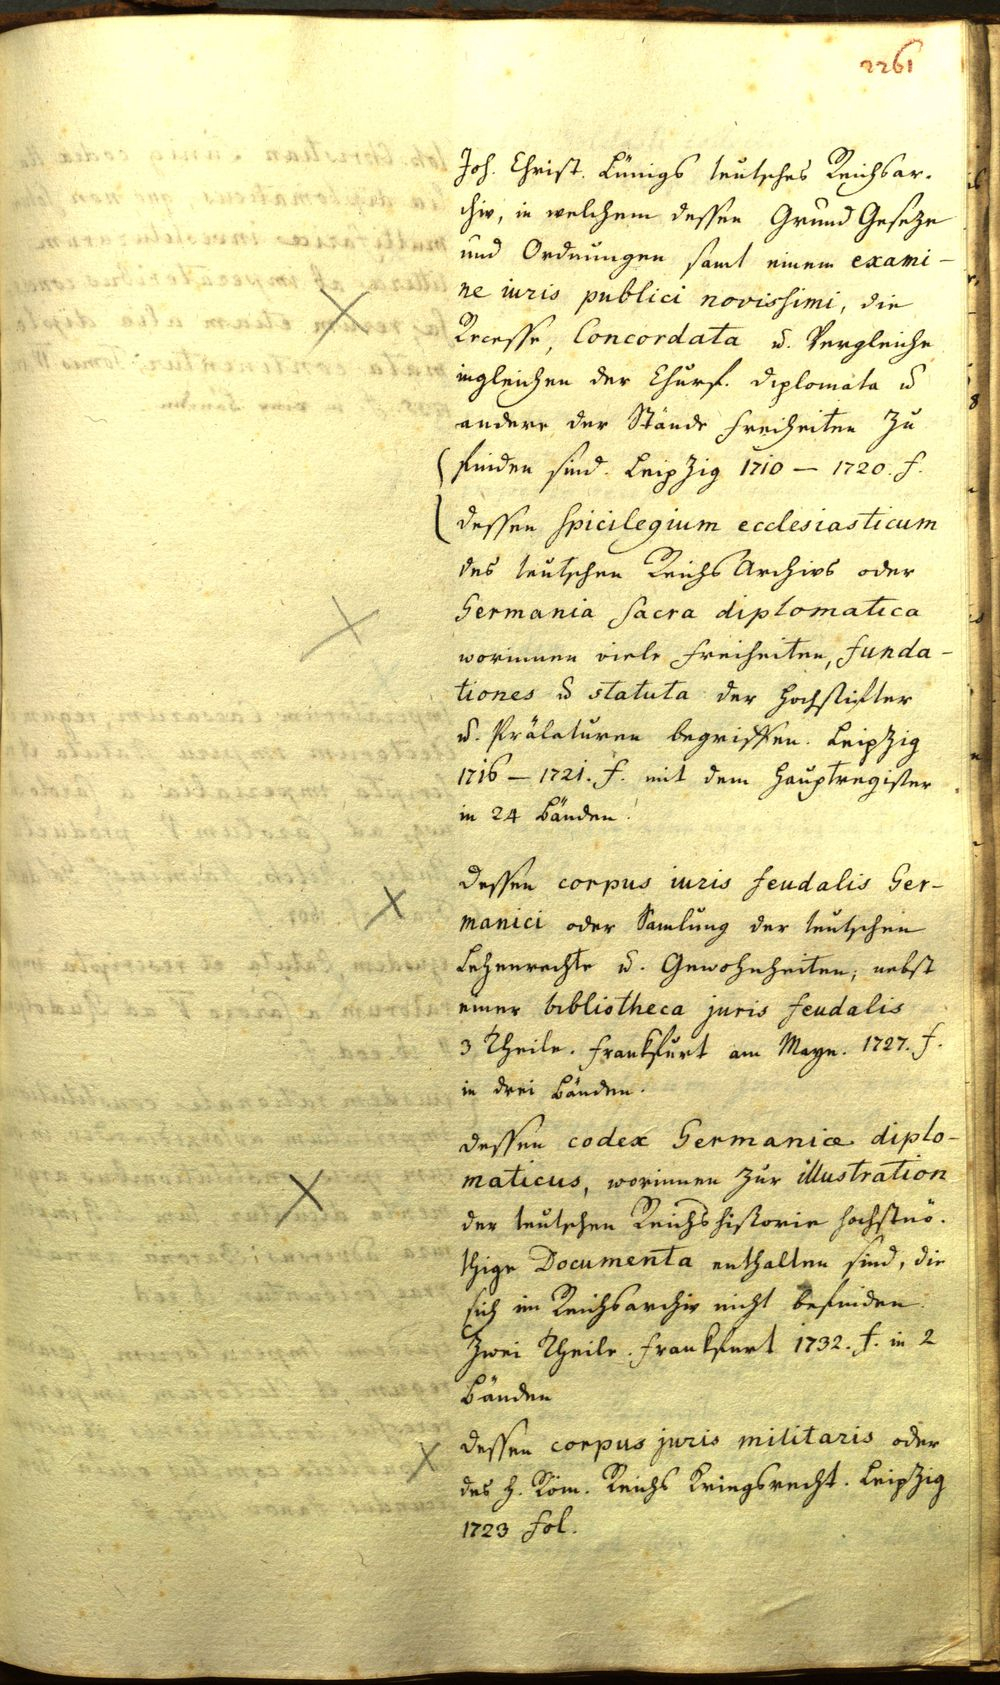 2261
Joh. Christ. Lünigs teutsches Reichsar-
chiv, in welchem dessen Grund Geseze
und Ordnungen samt einem exami-
ne iuris publici novissimi, die
Recesse, Concordata u. Vergleiche
ingleichen der Churf. diplomata u
andere der Stände Freiheiten zu
finden sind. Leipzig 1710 — 1720. f.
dessen spicilegium ecclesiasticum
des teutschen Reichs Archivs oder
Germania sacra diplomatica
worinnen viele Freiheiten, funda-
tiones u statuta der Hochstifter
u. Prälaturen begriffen. Leipzig
1716 — 1721. f. mit dem Hauptregister
in 24 Bänden.
dessen corpus iuris feudalis Ger-
manici oder Samlung der teutschen
Lehenrechte u. Gewohnheiten, nebst
einer bibliotheca juris feudalis
3 Theile. Frankfurt am Mayn. 1727. f.
in drei Bänden.
dessen codex Germaniæ diplo-
maticus, worinnen zur illustration
der teutschen Reichshistorie höchstnö-
thige Documenta enthalten sind, die
sich im Reichsarchiv nicht befinden
Zwei Theile. Frankfurt 1732. f. in 2
Bänden
dessen corpus juris militaris oder
des H. Röm. Reichs Kriegsrecht. Leipzig
1723 fol.